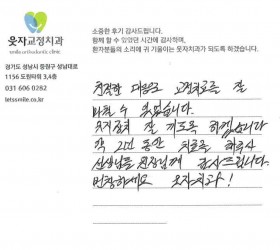 웃자교정치과
smile orthodontic clinic
경기도 성남시 중원구 성남대로
1156 도림타워 3,4층
031 606 0282
letssmile.co.kr
소중한 후기 감사드립니다.
함께 할 수 있었던 시간에 감사하며,
환자분들의 소리에 귀 기울이는 웃자치과가 되도록 하겠습니다.
친절한 대응으로 교정치료를 잘
마칠 수 있었습니다.
유지장치 잘 끼도록 하겠습니다.
약 2년 동안 치료를 해주신
선생님들 원장님께 감사드립니다.
번창하세요 웃자치과!